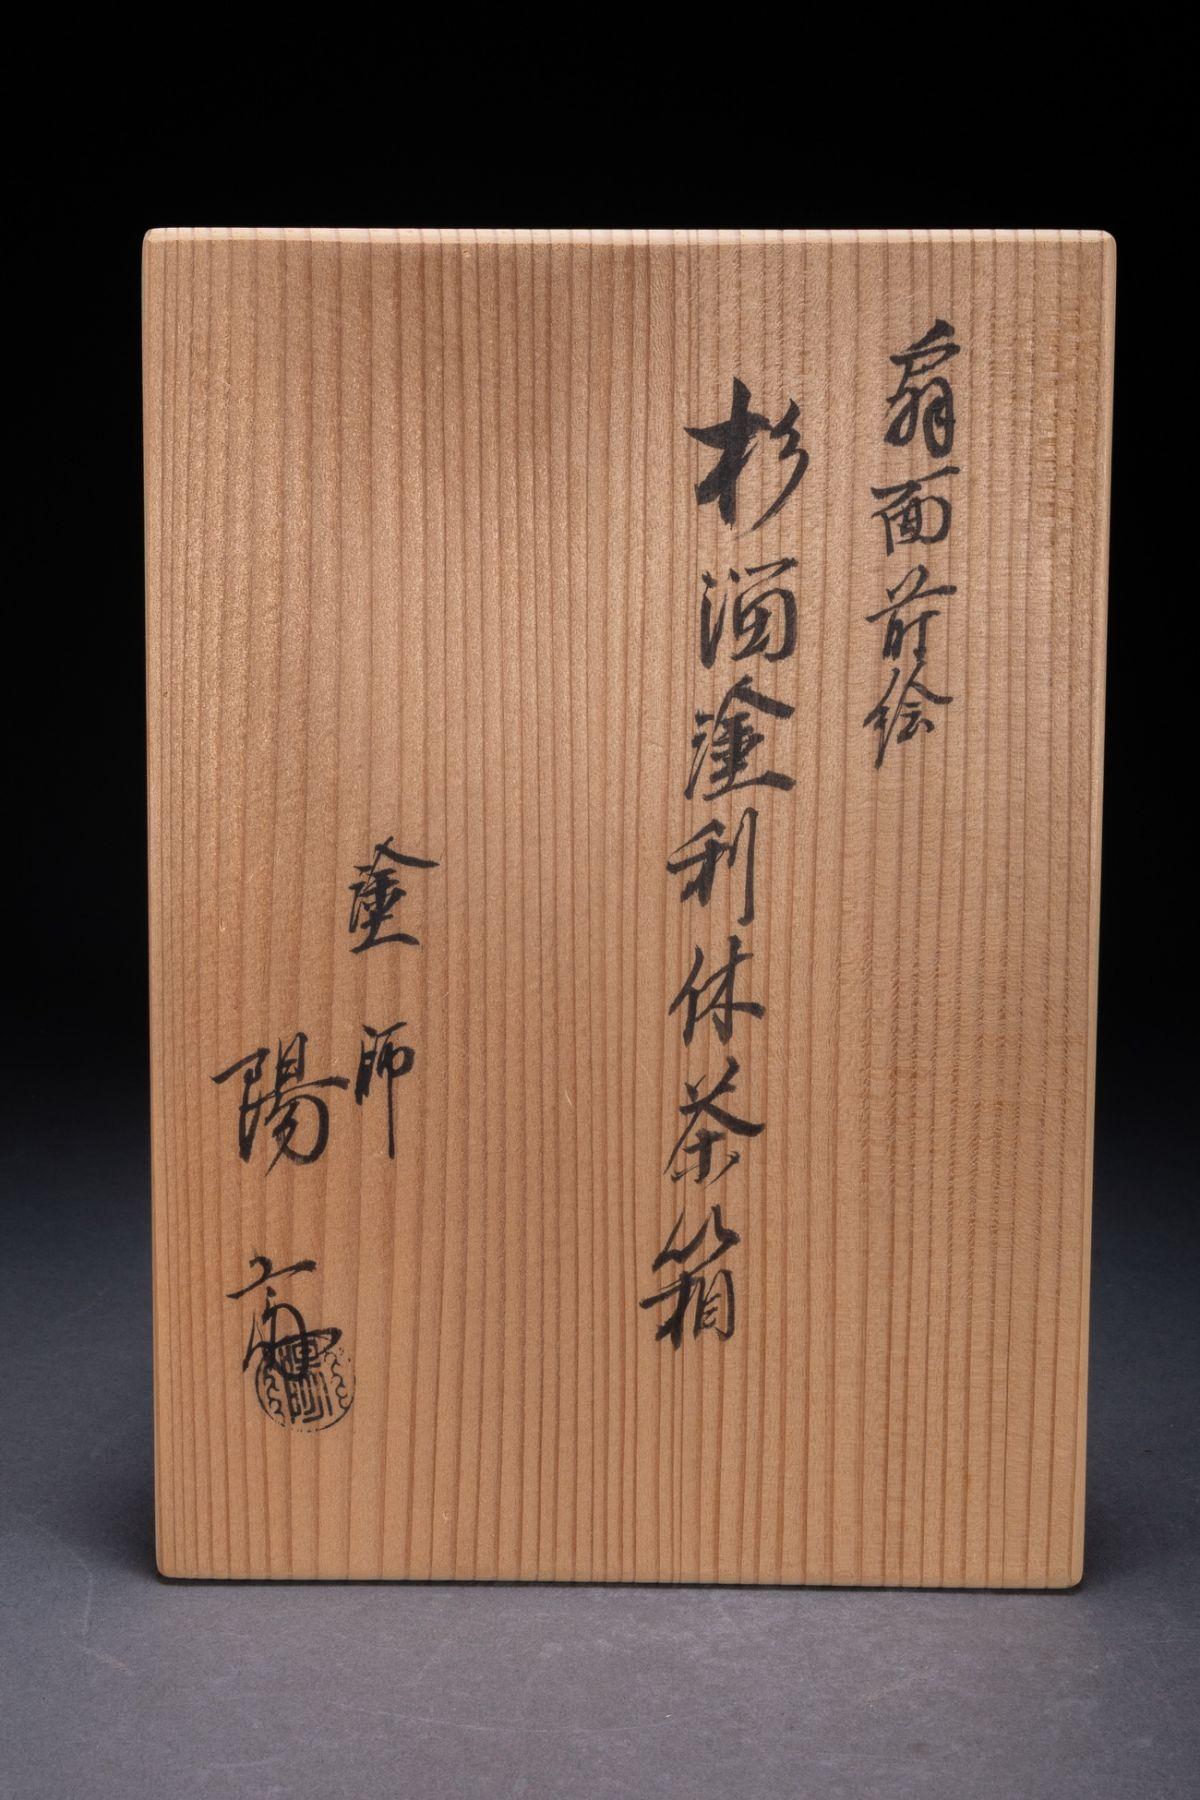 扇面蒔絵
杉溜塗利休茶箱
塗師
陽